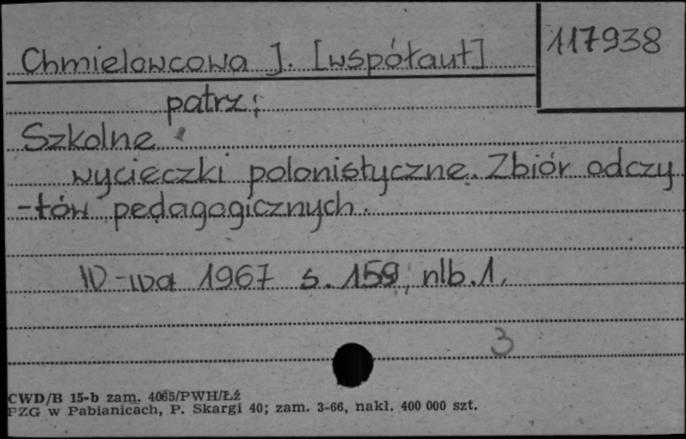 Chmielowcowa J. [współaut]
117938
patrz:
Szkolne
wycieczki polonistyczne. Zbiór odczy
-tów pedagogicznych.
W-wa 1967 s. 159, nlb. 1.
3
CWD/B 15-b zam. 4065/PWH/Łź
PZG w Pabianicach, P. Skargi 40; zam. 3-66, nakł. 400 000 szt.